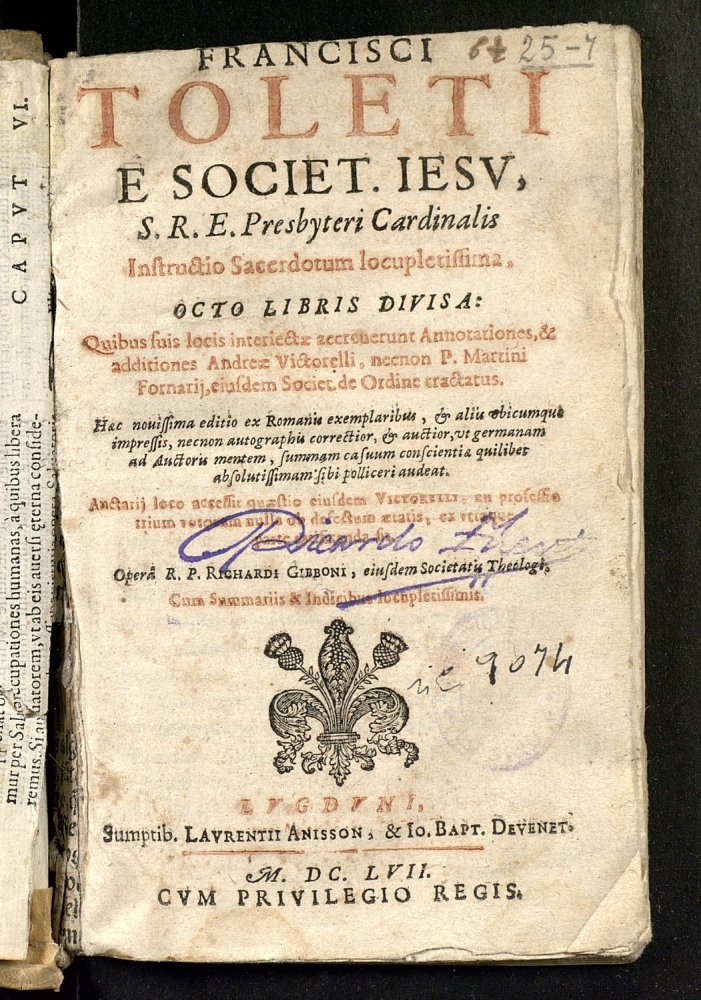 FRANCISCI
64 25-7
TOLETI
E SOCIET. IESV,
S. R. E. Presbyteri Cardinalis
Instructio Sacerdotum locupletissima,
OCTO LIBRIS DIVISA:
Quibus suis locis interiectæ accreuerunt Annotationes, &
additiones Andreæ Victorelli, necnon P. Martini
Fornarij, eiusdem Societ. de Ordine tractatus.
Hæc nouissima editio ex Romanis exemplaribus, & aliis vbicumque
impressis, necnon autographis correctior, & auctior, vt germanam
ad Auctoris mentem, summam casuum conscientiæ quilibet
absolutissimam sibi polliceri audeat.
Auctarij loco accessit quæstio eiusdem VICTORELLI; an professio
trium votorum nulla ob defectum ætatis, ex vtraque
Ricardo
Operâ R. P. RICHARDI GIBBONI, eiusdem Societatis Theologi.
Cum Summariis & Indicibus locupletissimis.
9074
LVGDVNI,
Sumptib. LAVRENTII ANISSON, & IO. BAPT. DEVENET.
M. DC. LVII.
CVM PRIVILEGIO REGIS.
CAPVT VI.
cupationes humanas, a quibus libera
mur per Sal
datorem, vt ab eis auersi æterna conside-
remus.